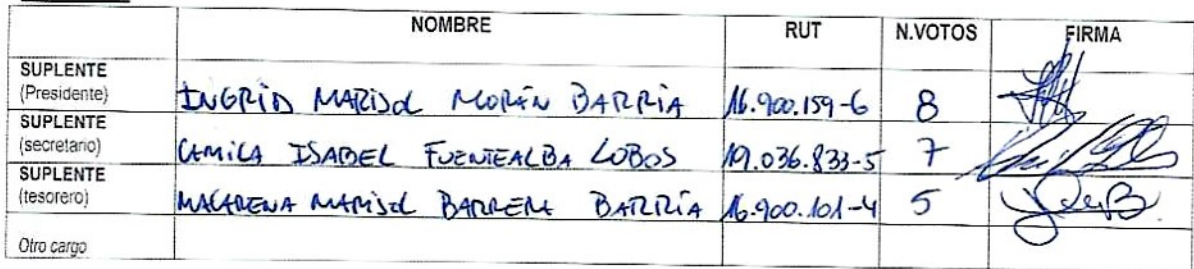 NOMBRE RUT N.VOTOS FIRMA
SUPLENTE
(Presidente) INGRID MARISOL MORÁN BARRÍA 16.900.159-6 8
SUPLENTE
(secretario) CAMILA ISABEL FUENTEALBA LOBOS 19.036.833-5 7
SUPLENTE
(tesorero) MACARENA MARISOL BARRERA BARRÍA 16.900.101-4 5
Otro cargo